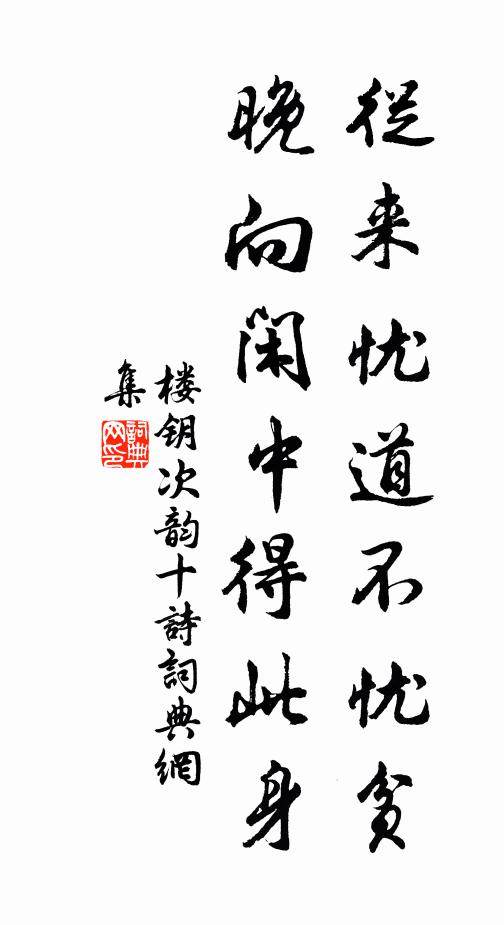 從来忧道不忧貧
晚向闲中得此身
楼钥次韵十詩詞典網
集
詞典
网印